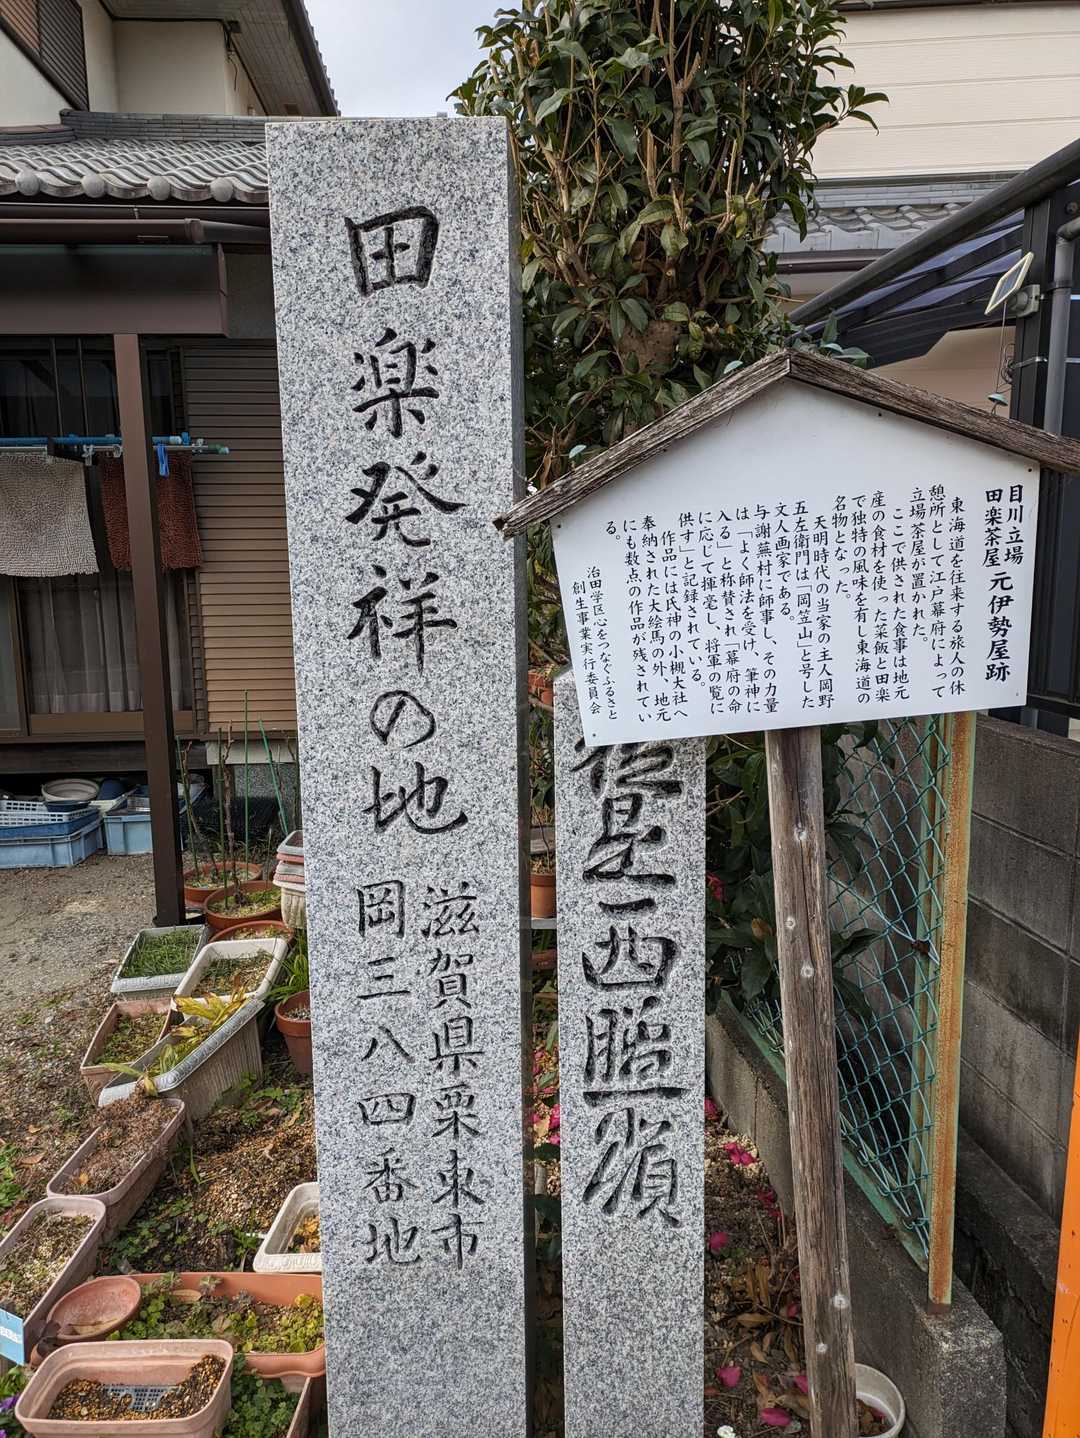 田楽発祥の地
滋賀県栗東市
岡三八四番地
西照
目川立場
田楽茶屋 元伊勢屋跡
東海道を往来する旅人の休
憩所として江戸幕府によって
立場茶屋が置かれた。
ここで供された食事は地元
産の食材を使った菜飯と田楽
で独特の風味を有し東海道の
名物となった。
天明時代の当家の主人岡野
五左衛門は「岡笠山」と号した
文人画家である。
与謝蕪村に師事し、その力量
は「よく師法を受け、筆神に
入る」と称賛され「幕府の命
に応じて揮毫し、将軍の覧に
供す」と記録されている。
作品には氏神の小槻大社へ
奉納された大絵馬の外、地元
にも数点の作品が残されてい
る。
治田学区心をつなぐふるさと
創生事業実行委員会